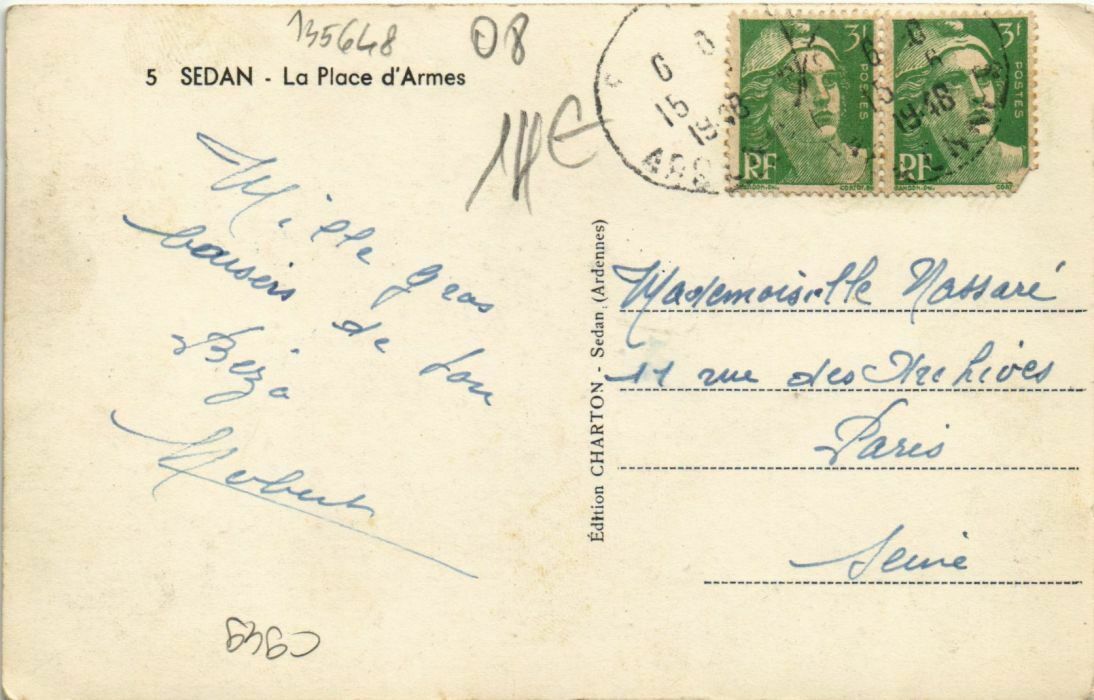 135648
08
5 SEDAN - La Place d'Armes
Mille gros
baisers de ton
Bézo
Édition CHARTON - Sedan (Ardennes)
3f
POSTES
RF
3f
POSTES
RF
15
1948
ARD
15
1948
Mademoiselle Nassaré
11 rue des Archives
Paris
Seine